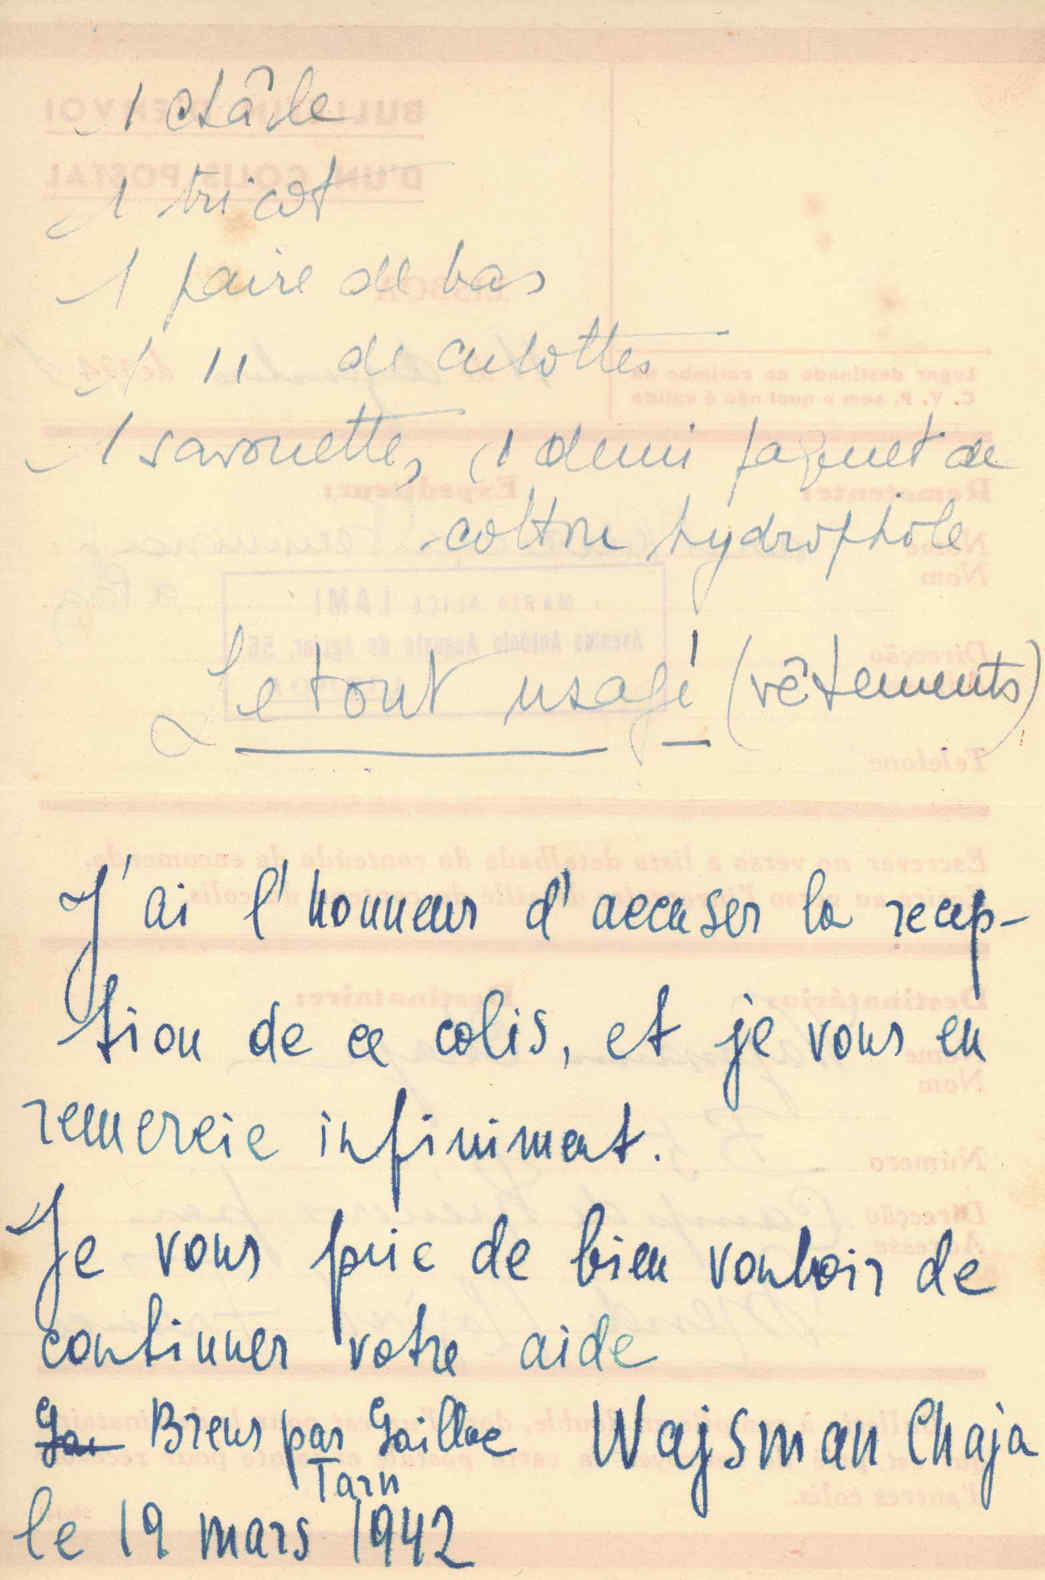 1 châle
1 tricot
1 paire de bas
1 11 de culottes
1 savonette, (1 demi paquet de
cotton hydrophile
Le tout usagé (vêtements)
J'ai l'honneur d'accuser la recep-
tion de ce colis, et je vous en
remercie infiniment.
Je vous prie de bien vouloir de
continuer votre aide
Gai Brens par Gaillac Wajsman Chaja
Tarn
le 19 mars 1942